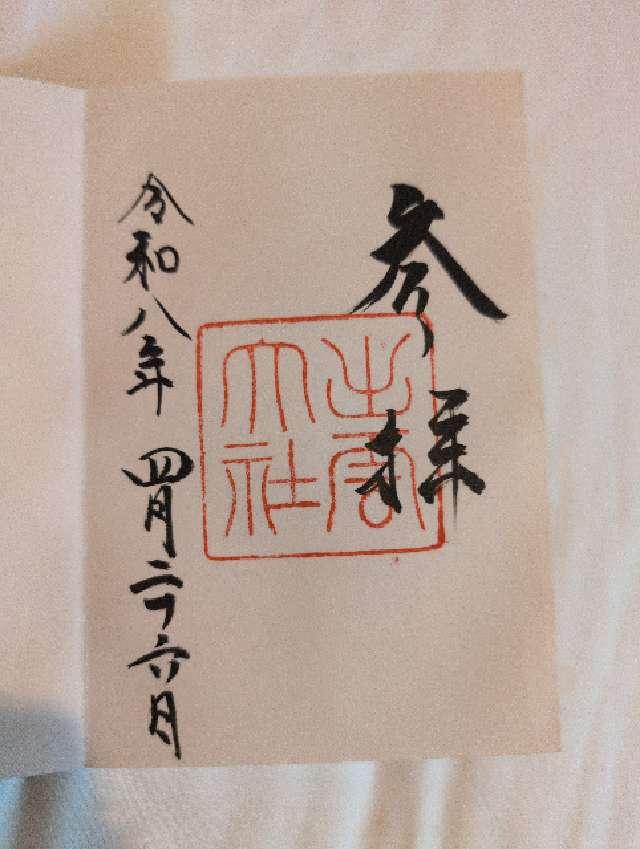 参拝
出雲
大社
令和八年 四月二十六日